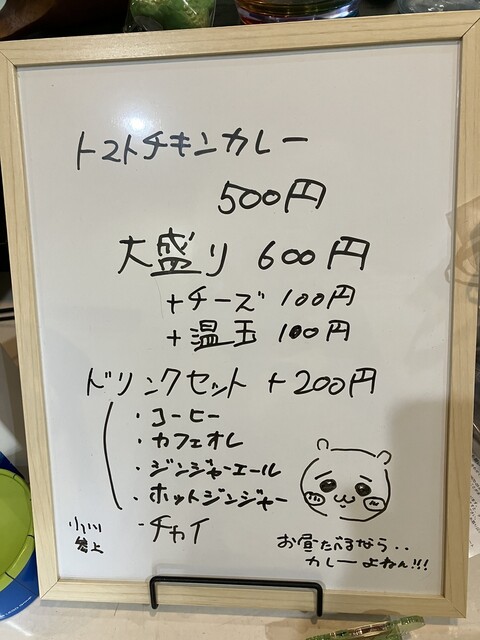 トマトチキンカレー
500円
大盛り 600円
+チーズ 100円
+温玉 100円
ドリンクセット +200円
・コーヒー
・カフェオレ
・ジンジャーエール
・ホットジンジャー
・チャイ
参上
お昼たべるなら..
カレーよねん!!!